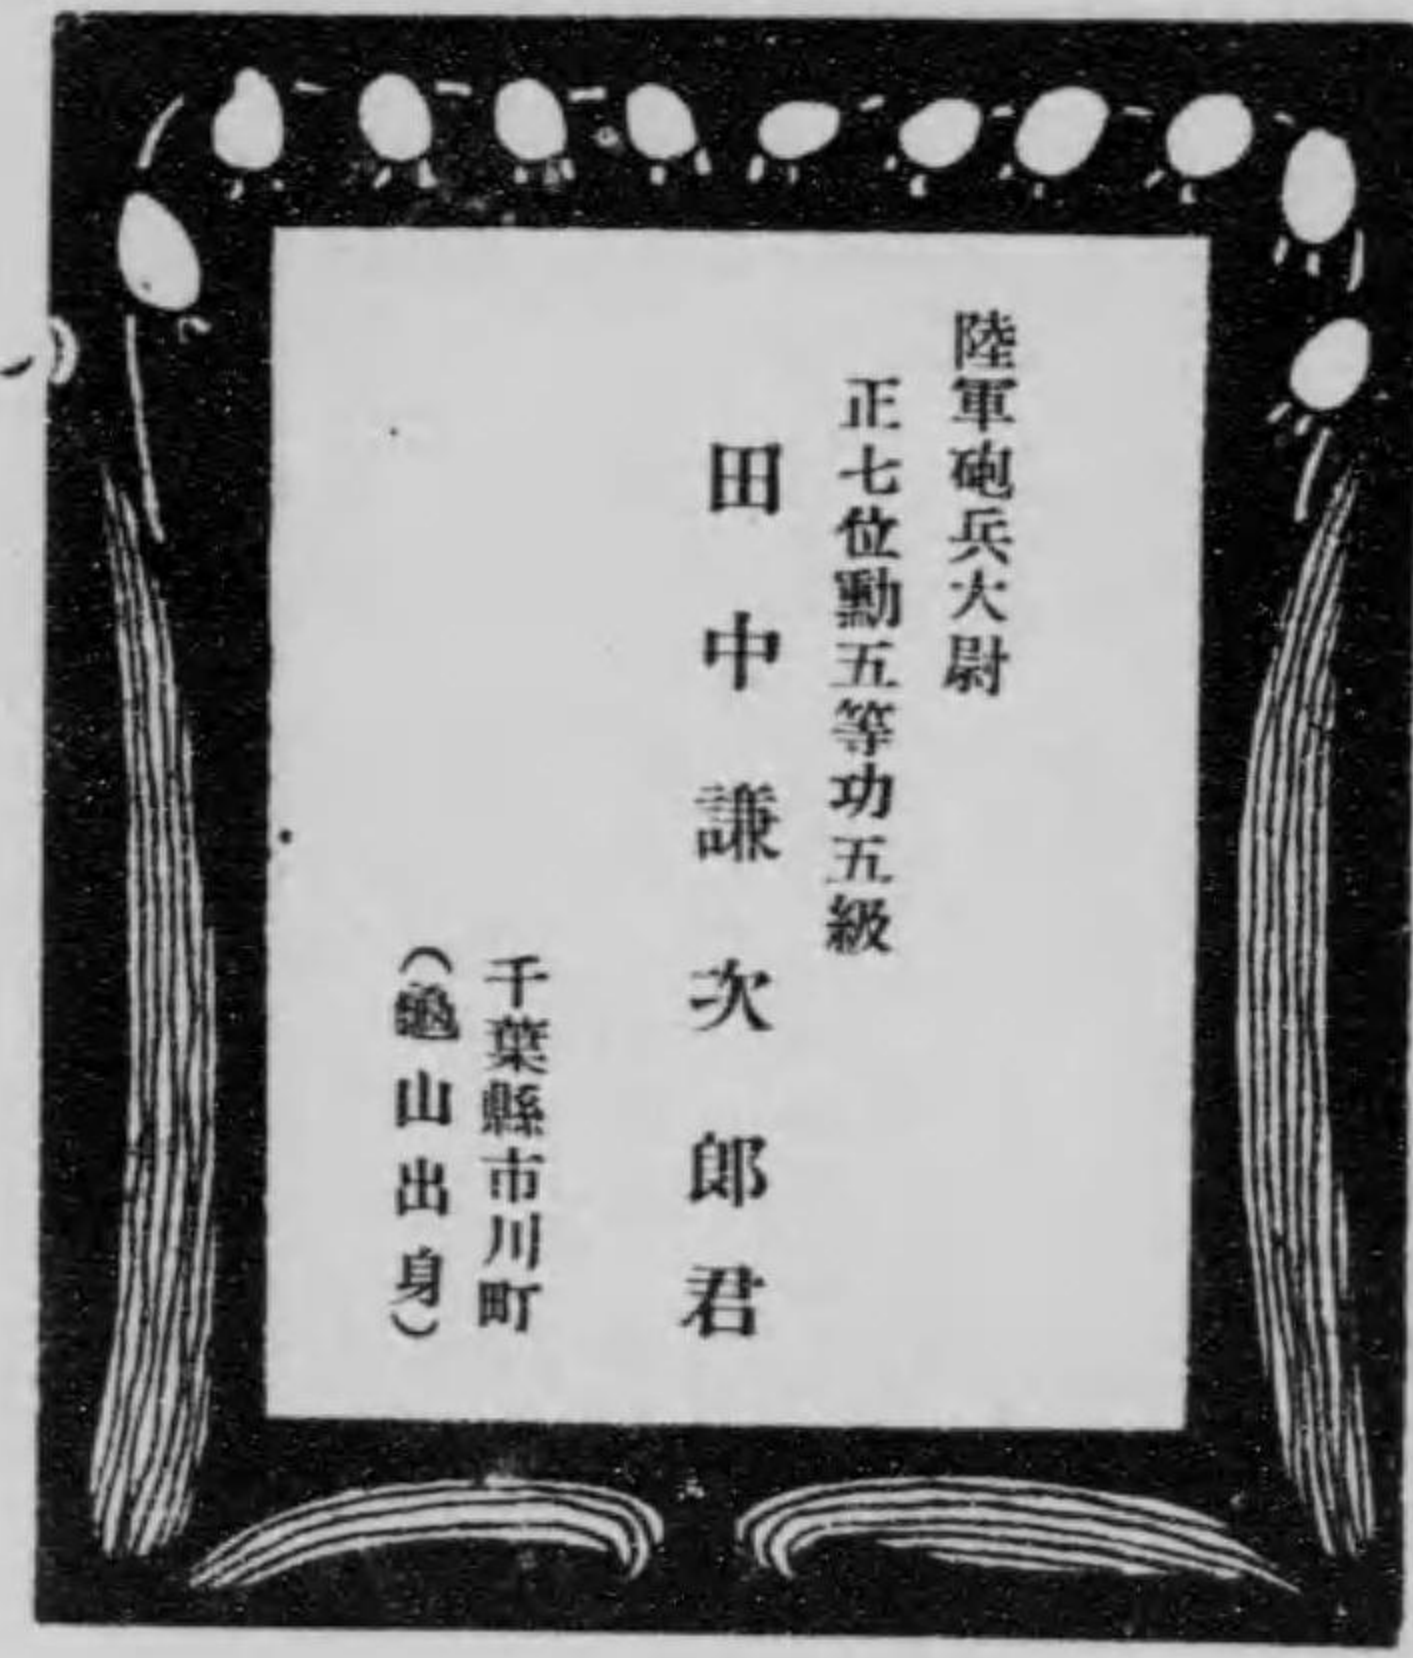 陸軍砲兵大尉
正七位勳五等功五級
田中謙次郎君
千葉縣市川町
(龜山出身)